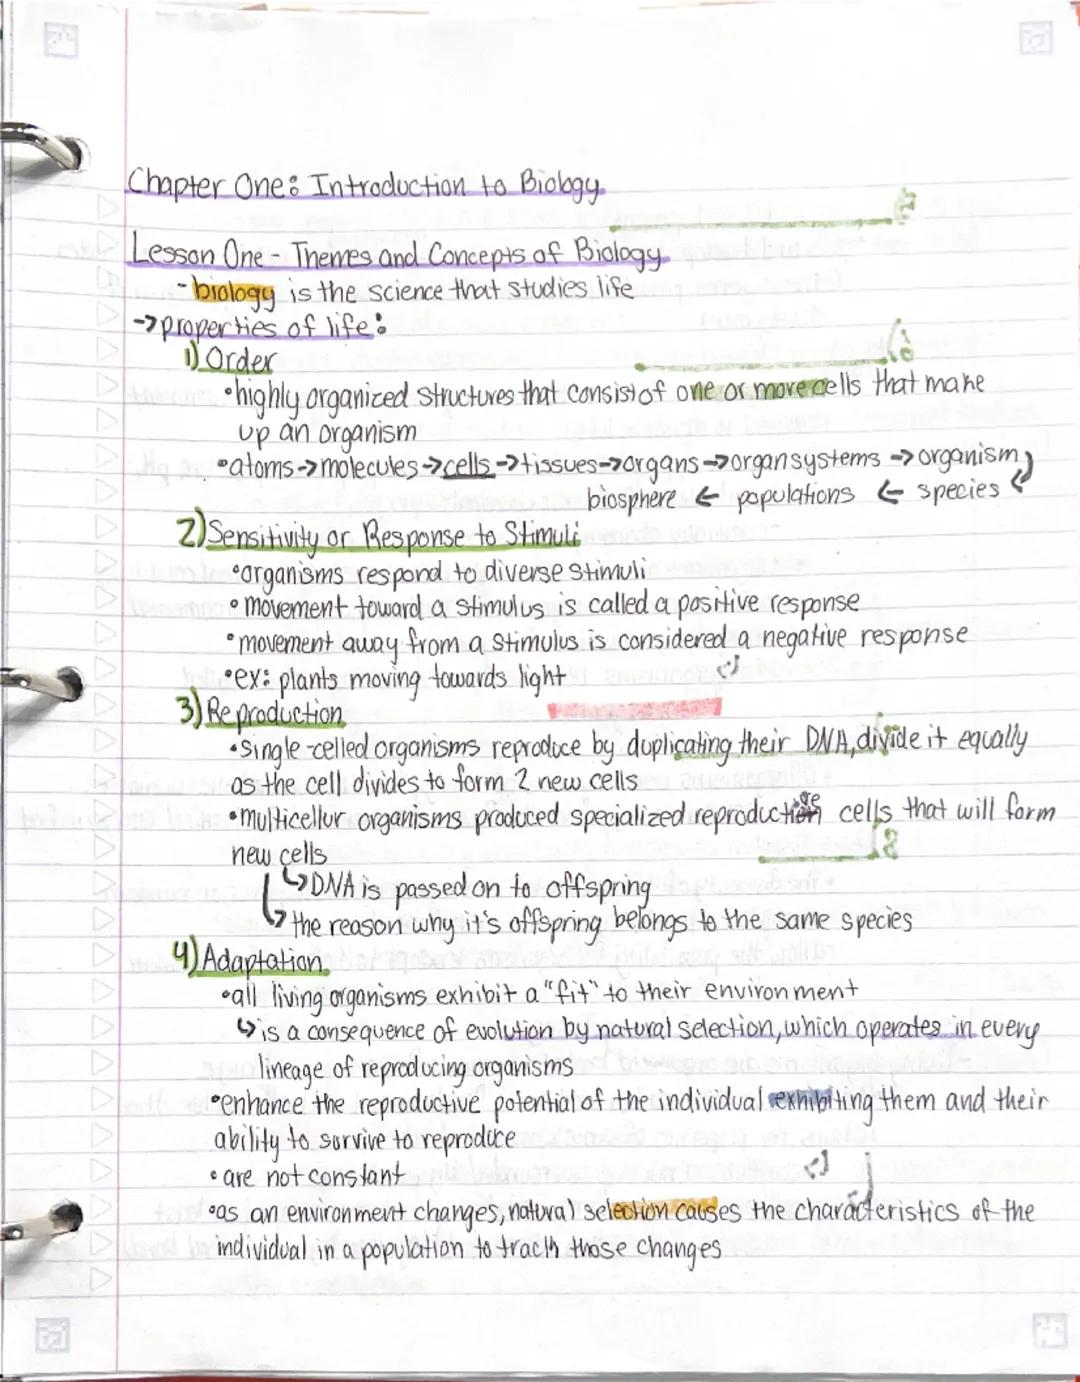 Chapter One: Introduction to Biology
Lesson One - Themes and Concepts of Biology
- biology is the science that studies life
→ properties of life:
1) Order
• highly organized structures that consist of one or more cells that make
up an organism
• atoms → molecules → cells → tissues → organs → organ systems → organism
biosphere ← populations ← species
2) Sensitivity or Response to Stimuli
• organisms respond to diverse stimuli
• movement toward a stimulus is called a positive response
• movement away from a stimulus is considered a negative response
• ex: plants moving towards light
3) Reproduction
• single-celled organisms reproduce by duplicating their DNA, divide it equally
as the cell divides to form 2 new cells
• multicellur organisms produced specialized reproductive cells that will form
new cells
↳ DNA is passed on to offspring
↳ the reason why it's offspring belongs to the same species
4) Adaptation
• all living organisms exhibit a "fit" to their environment
↳ is a consequence of evolution by natural selection, which operates in every
lineage of reproducing organisms
• enhance the reproductive potential of the individual exhibiting them and their
ability to survive to reproduce
• are not constant
• as an environment changes, natural selection causes the characteristics of the
individual in a population to track those changes